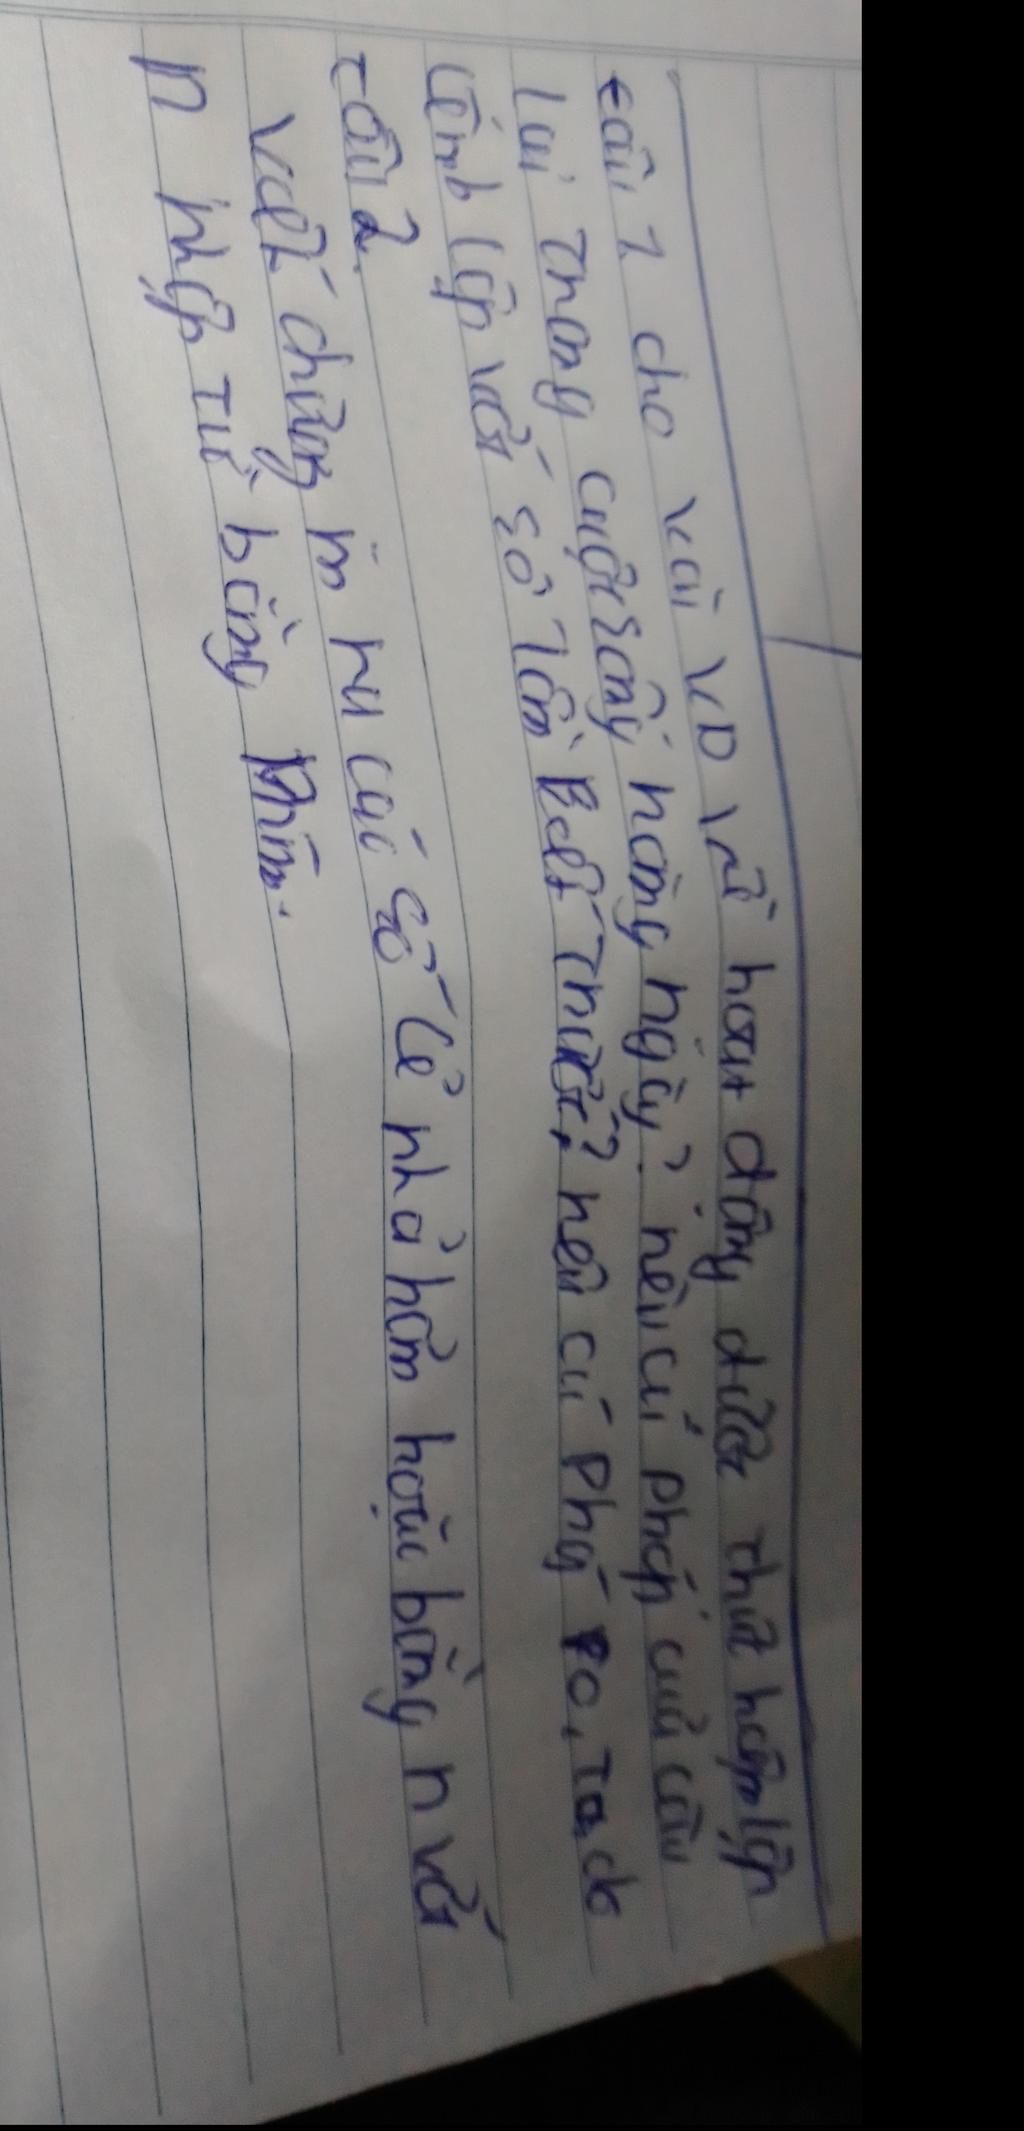 câu 1 cho vài VD về hoạt động được thực hiện lặp
lại trong cuộc sống hàng ngày? nêu cú pháp của câu
lệnh lặp với số lần Biết trước? nêu cú pháp Fo, To, do
Câu 2.
Viết chương in ra các số lẻ nhỏ hơn hoặc bằng n với
n nhập từ bàn phím.